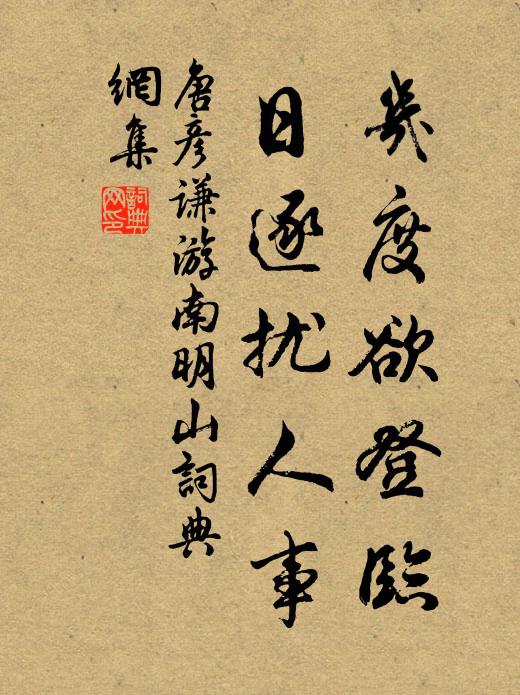 幾度欲登臨
日逐扰人事
唐彦谦游南明山詞典
網集
詞典
网印